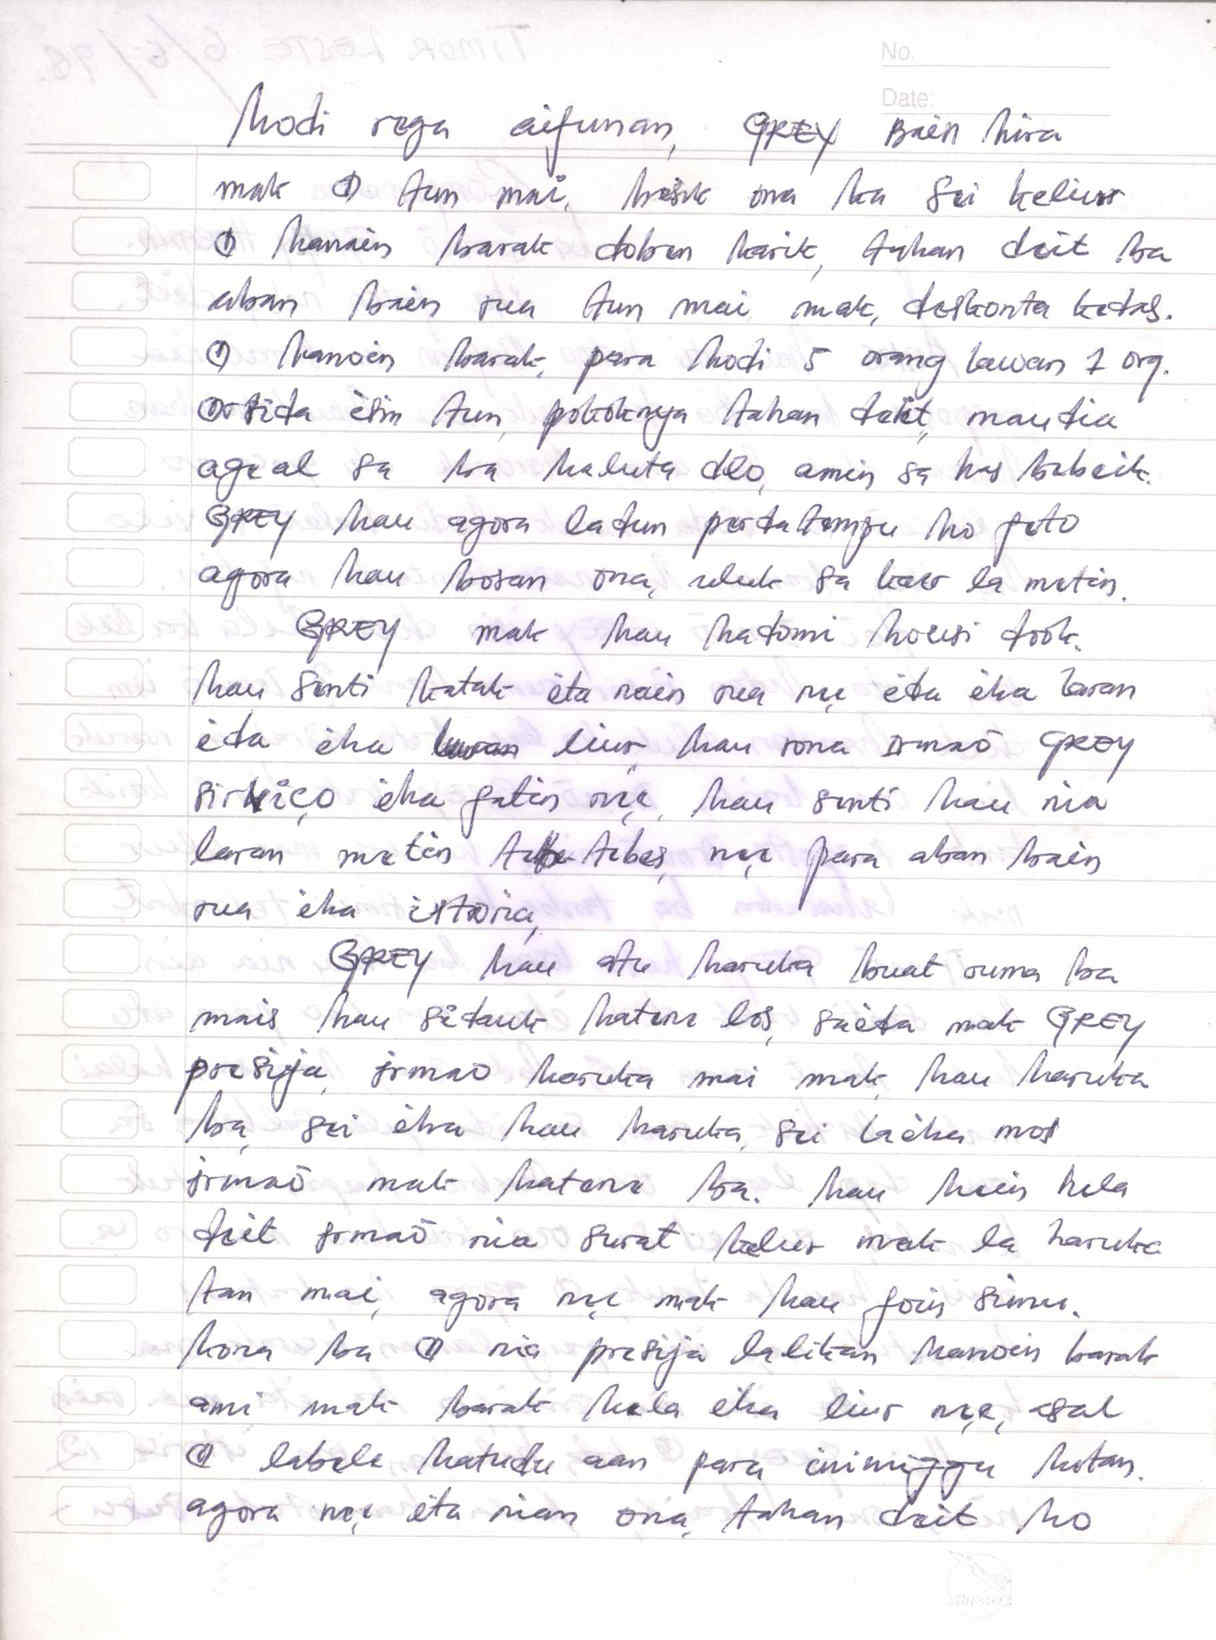 No.
Date:
hodi rega aifunan, GREY Bain hira
mak O tun mai, besik ona ba sei keliur
O hanoin barak doben karik, tahan deit ba
aban bain rua tun mai mak, deskonta kedas.
O hanoin barak, para hodi 5 orang lawan 1 org.
Orsida ésin tun, pokoknya tahan deit, maudia
ageal sa ba haluta dlo, amin sa has bebeik.
GREY hau agora ladun perdatempu ho feto
agora hau bosan ona, uluk sa kar la metin.
GREY mak hau hadomi housi dook.
hau senti katak éta nain rua ne éta iha laran
éta iha liur, hau rona Irmaõ GREY
sirviço iha fatin ne, hau senti hau nia
laran metin tebes, ne para aban bain
rua iha istoria,
GREY hau atu haruka buat ruma ba
mais hau sidauk hatene los, saida mak GREY
presija, irmao haruka mai mak, hau haruka
ba, sei iha hau haruka, sei laiha mos
irmaõ mak hatene ba. hau hein hela
deit irmaõ nia surat kelur mak la haruka
tan mai, agora ne mak hau foin simu.
kona ba O nia presija lalikan hanoin barak
ami mak barak hela iha liur ne, asal
O labele hatudu aan para inimiggu hetan.
agora ne éta nian ona, tahan deit ho